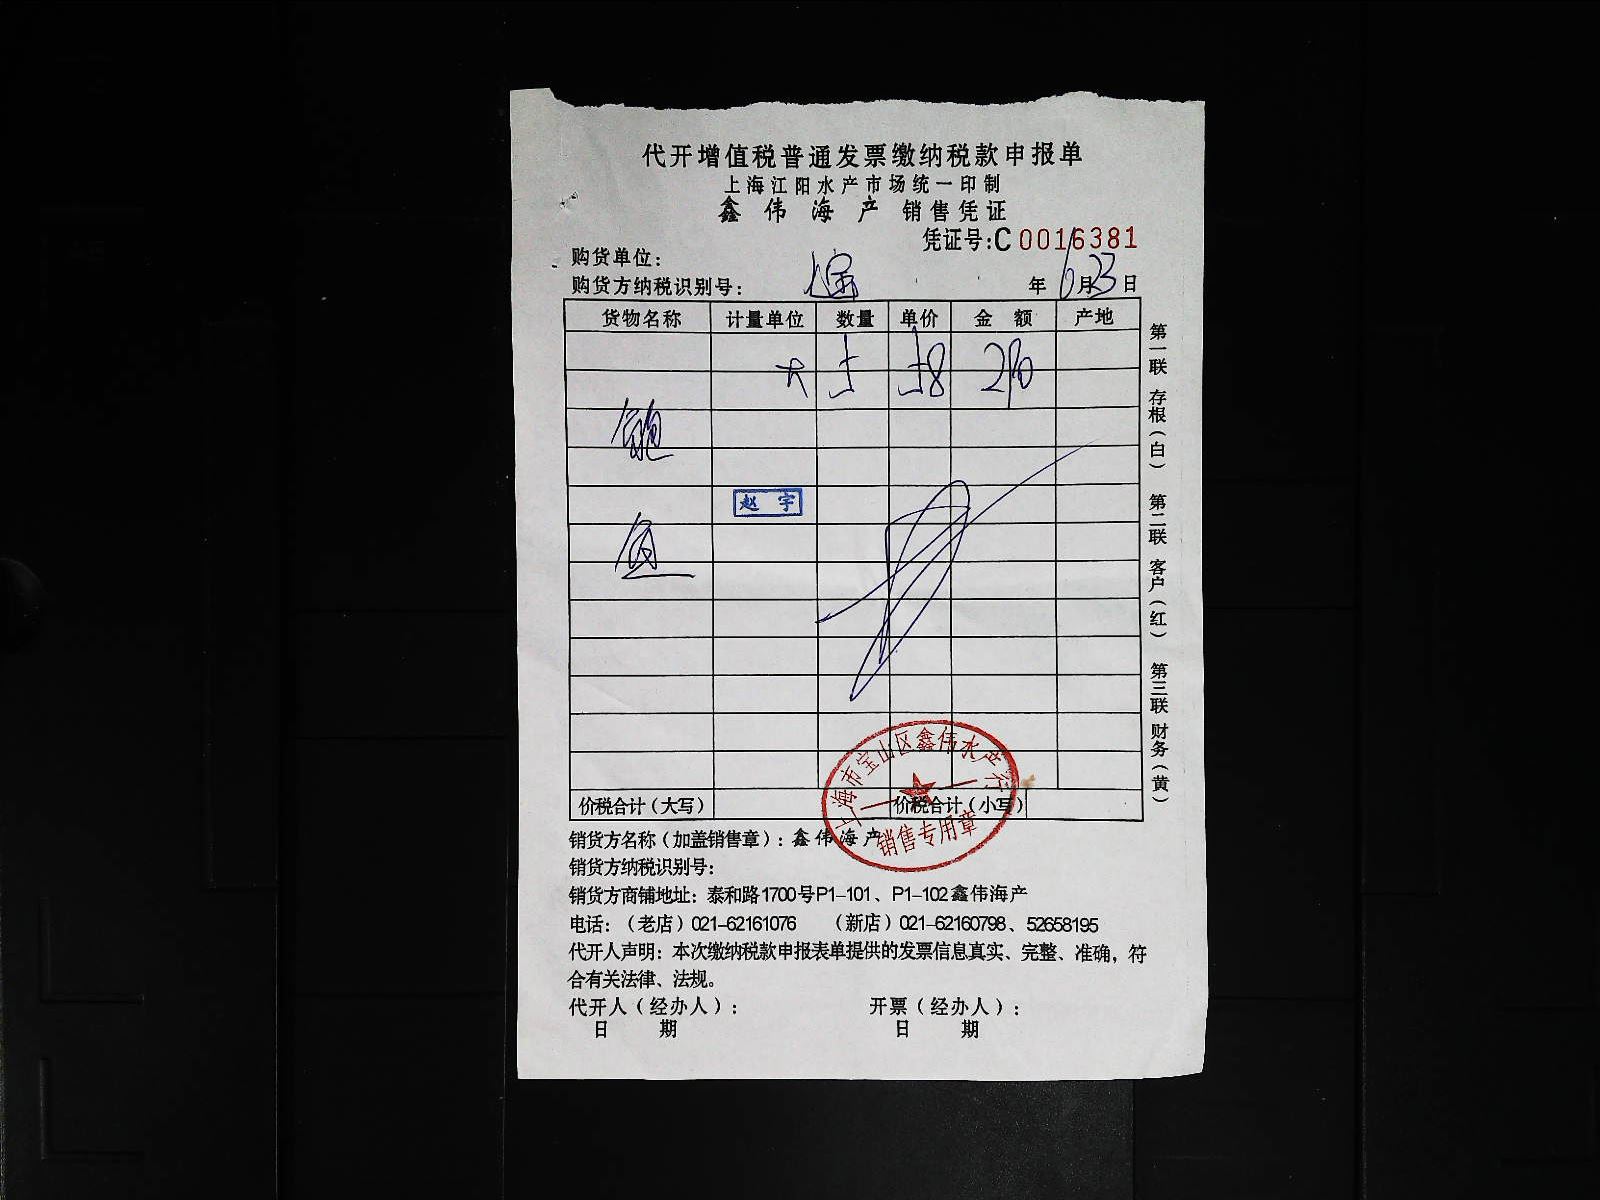 代开增值税普通发票缴纳税款申报单
上海江阳水产市场统一印制
鑫伟海产 销售凭证
凭证号:C 0016381
购货单位:
购货方纳税识别号: 年 6月23日
货物名称 计量单位 数量 单价 金 额 产地
大
鲍
鱼
赵 宇
价税合计(大写) 价税合计(小写)
上海市宝山区鑫伟水产行
销售专用章
销货方名称(加盖销售章): 鑫伟海产
销货方纳税识别号:
销货方商铺地址: 泰和路1700号P1-101、P1-102鑫伟海产
电话:(老店)021-62161076 (新店)021-62160798、52658195
代开人声明: 本次缴纳税款申报表单提供的发票信息真实、完整、准确, 符
合有关法律、法规。
代开人(经办人): 开票(经办人):
日 期 日 期
第一联 存根(白) 第二联 客户(红) 第三联 财务(黄)